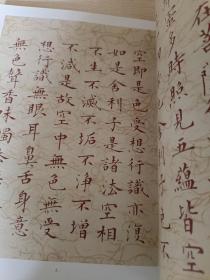 在菩
多時照見五蘊皆空
空即是色受想行識亦復
如是舍利子是諸法空相
不生不滅不垢不淨不增
不減是故空中無色無受
想行識無眼耳鼻舌身意
無色聲香味觸